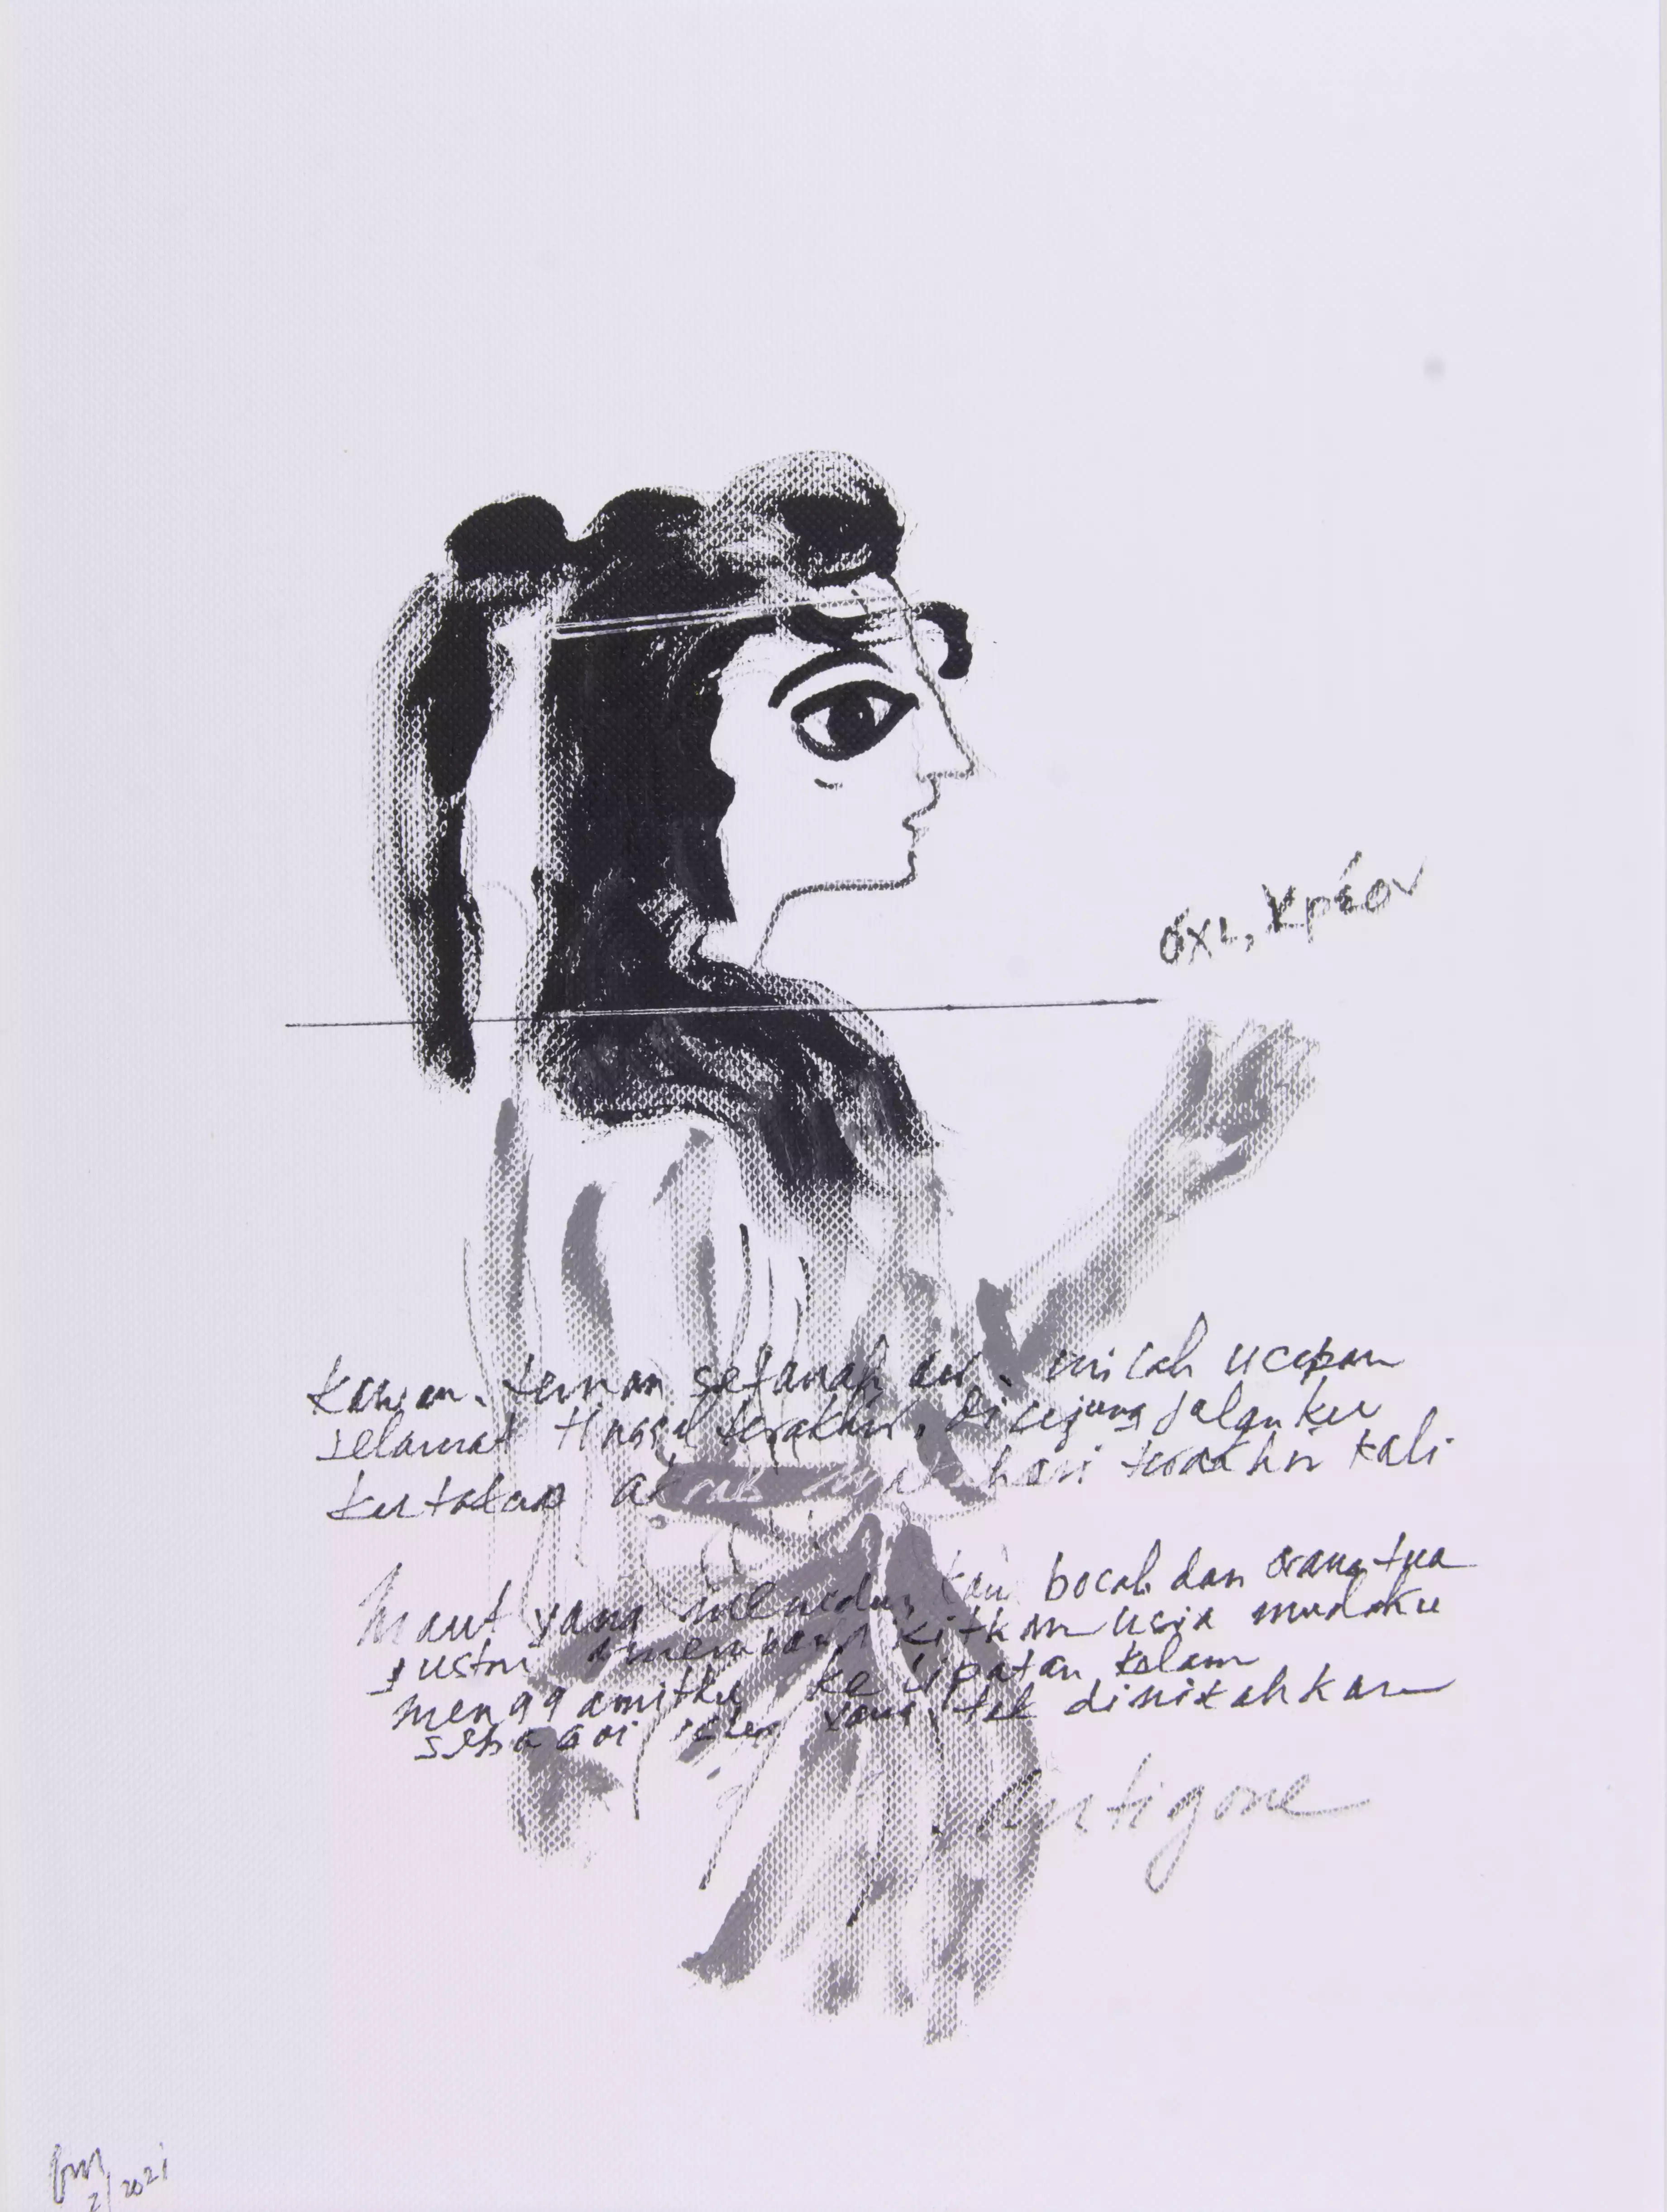 όχι, Κρέον
kawan-teman setanah air. inilah ucapan
selamat tinggal terakhir, di ujung jalanku
kutatap arak matahari terakhir kali
maut yang menidurkan bocah dan orang tua
justru membangkitkan usia mudaku
menggamitku ke lipatan kelam
sebagai yang tak dinikahkan
Antigone
2/2021